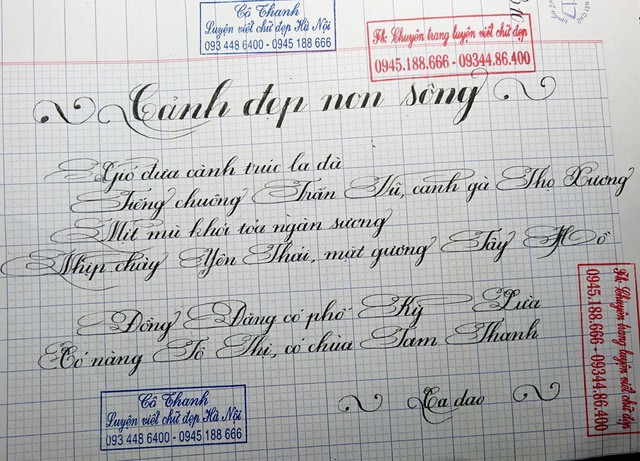 Cô Thanh
Luyện viết chữ đẹp Hà Nội
093 448 6400 - 0945 188 666
Fk: Chuyên trang luyện viết chữ đẹp
0945.188.666 - 09344.86.400
Cảnh đẹp non sông
Gió đưa cành trúc la đà
Tiếng chuông Trấn Vũ, canh gà Thọ Xương
Mịt mù khói tỏa ngàn sương
Nhịp chày Yên Thái, mặt gương Tây Hồ
Đồng Đăng có phố Kỳ Lừa
Có nàng Tô Thị, có chùa Tam Thanh
Ca dao
Cô Thanh
Luyện viết chữ đẹp Hà Nội
093 448 6400 - 0945 188 666
Fk: Chuyên trang luyện viết chữ đẹp
0945.188.666 - 09344.86.400